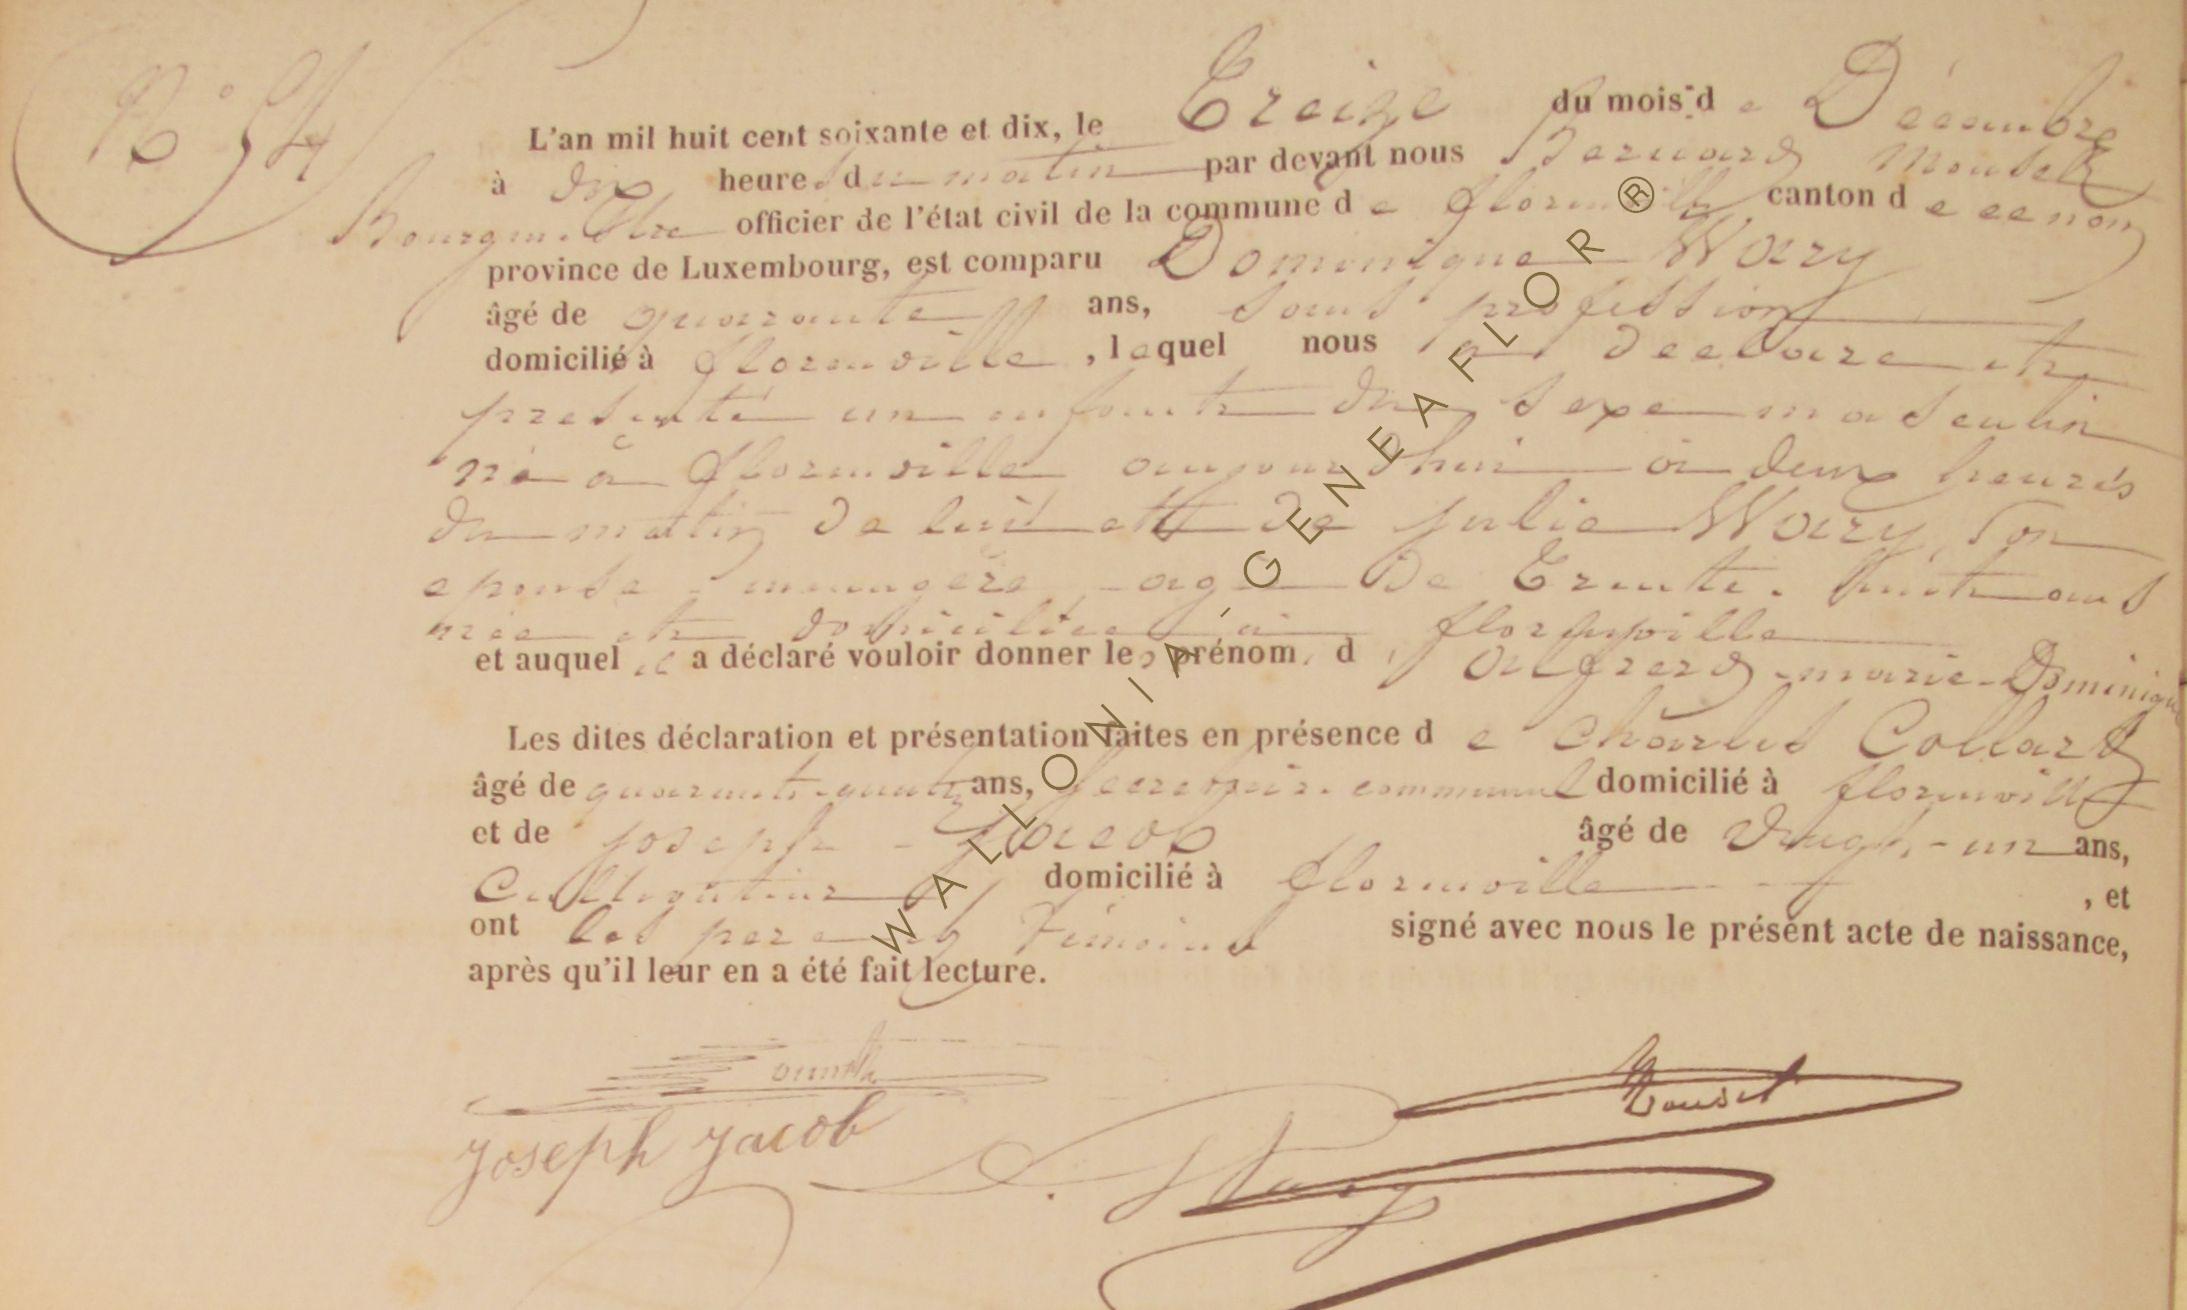 N° 54
L'an mil huit cent soixante et dix, le Treize du mois de Décembre
à dix heures du matin par devant nous Bernard Mouset
Bourgmestre officier de l'état civil de la commune de florenville canton de ce nom
province de Luxembourg, est comparu Dominique Wary
âgé de quarante ans, sans profession
domicilié à florenville, lequel nous a declaré et
presenté un enfant du sexe masculin
né à florenville aujourd'hui à deux heures
du matin de lui et de julie Wary, son
epouse menagère agée de Trente-huit ans
née et domiciliée à florenville
et auquel il a déclaré vouloir donner les prénoms d alfred-marie-Dominique
Les dites déclaration et présentation faites en présence de charles Collard
âgé de quarante-quatre ans, secretaire communal domicilié à florenville
et de joseph jacob âgé de vingt-un ans,
Cultivateur domicilié à florenville, et
ont les pere et Témoins signé avec nous le présent acte de naissance,
après qu'il leur en a été fait lecture.
Mouset
joseph jacob
D. Wary
WALLONIA-GENEAFLOR®